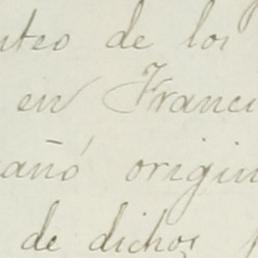 nteo de los
en Franci
añó origin
de dichos